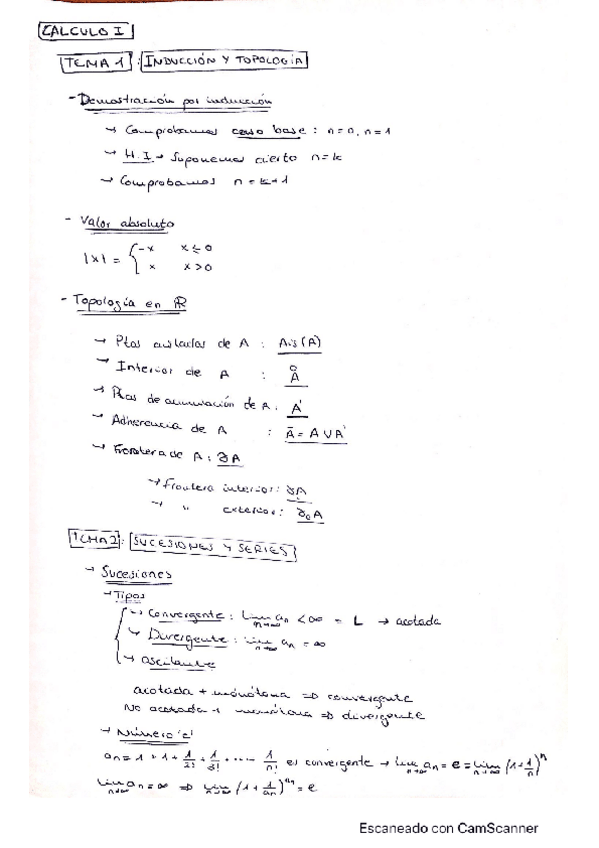 CALCULO I
TEMA 1 : INDUCCIÓN Y TOPOLOGÍA
- Demostración por inducción
→ Comprobamos caso base : n=0, n=1
→ H.I → Suponemos cierto n=k
→ Comprobamos n=k+1
- Valor absoluto
|x| = { -x x≤0
x x>0
- Topología en ℝ
→ Ptos aislados de A : Ais(A)
→ Interior de A : Å
→ Ptos de acumulación de A : A'
→ Adherencia de A : Ā = A ∪ A'
→ Frontera de A : ∂A
→ Frontera interior : ∂A
→ " exterior : ∂₀A
TEMA 2 : SUCESIONES Y SERIES
→ Sucesiones
→ Tipos
→ Convergente : lim n→∞ an < ∞ = L → acotada
→ Divergente : lim n→∞ an = ∞
→ Oscilante
acotada + monótona ⇒ convergente
No acotada + monótona ⇒ divergente
→ Número 'e'
an = 1 + 1 + 1/2! + 1/3! + ... 1/n! es convergente → lim n→∞ an = e = lim n→∞ (1+1/n)^n
lim n→∞ an = ∞ ⇒ lim n→∞ (1+1/an)^an = e
Escaneado con CamScanner